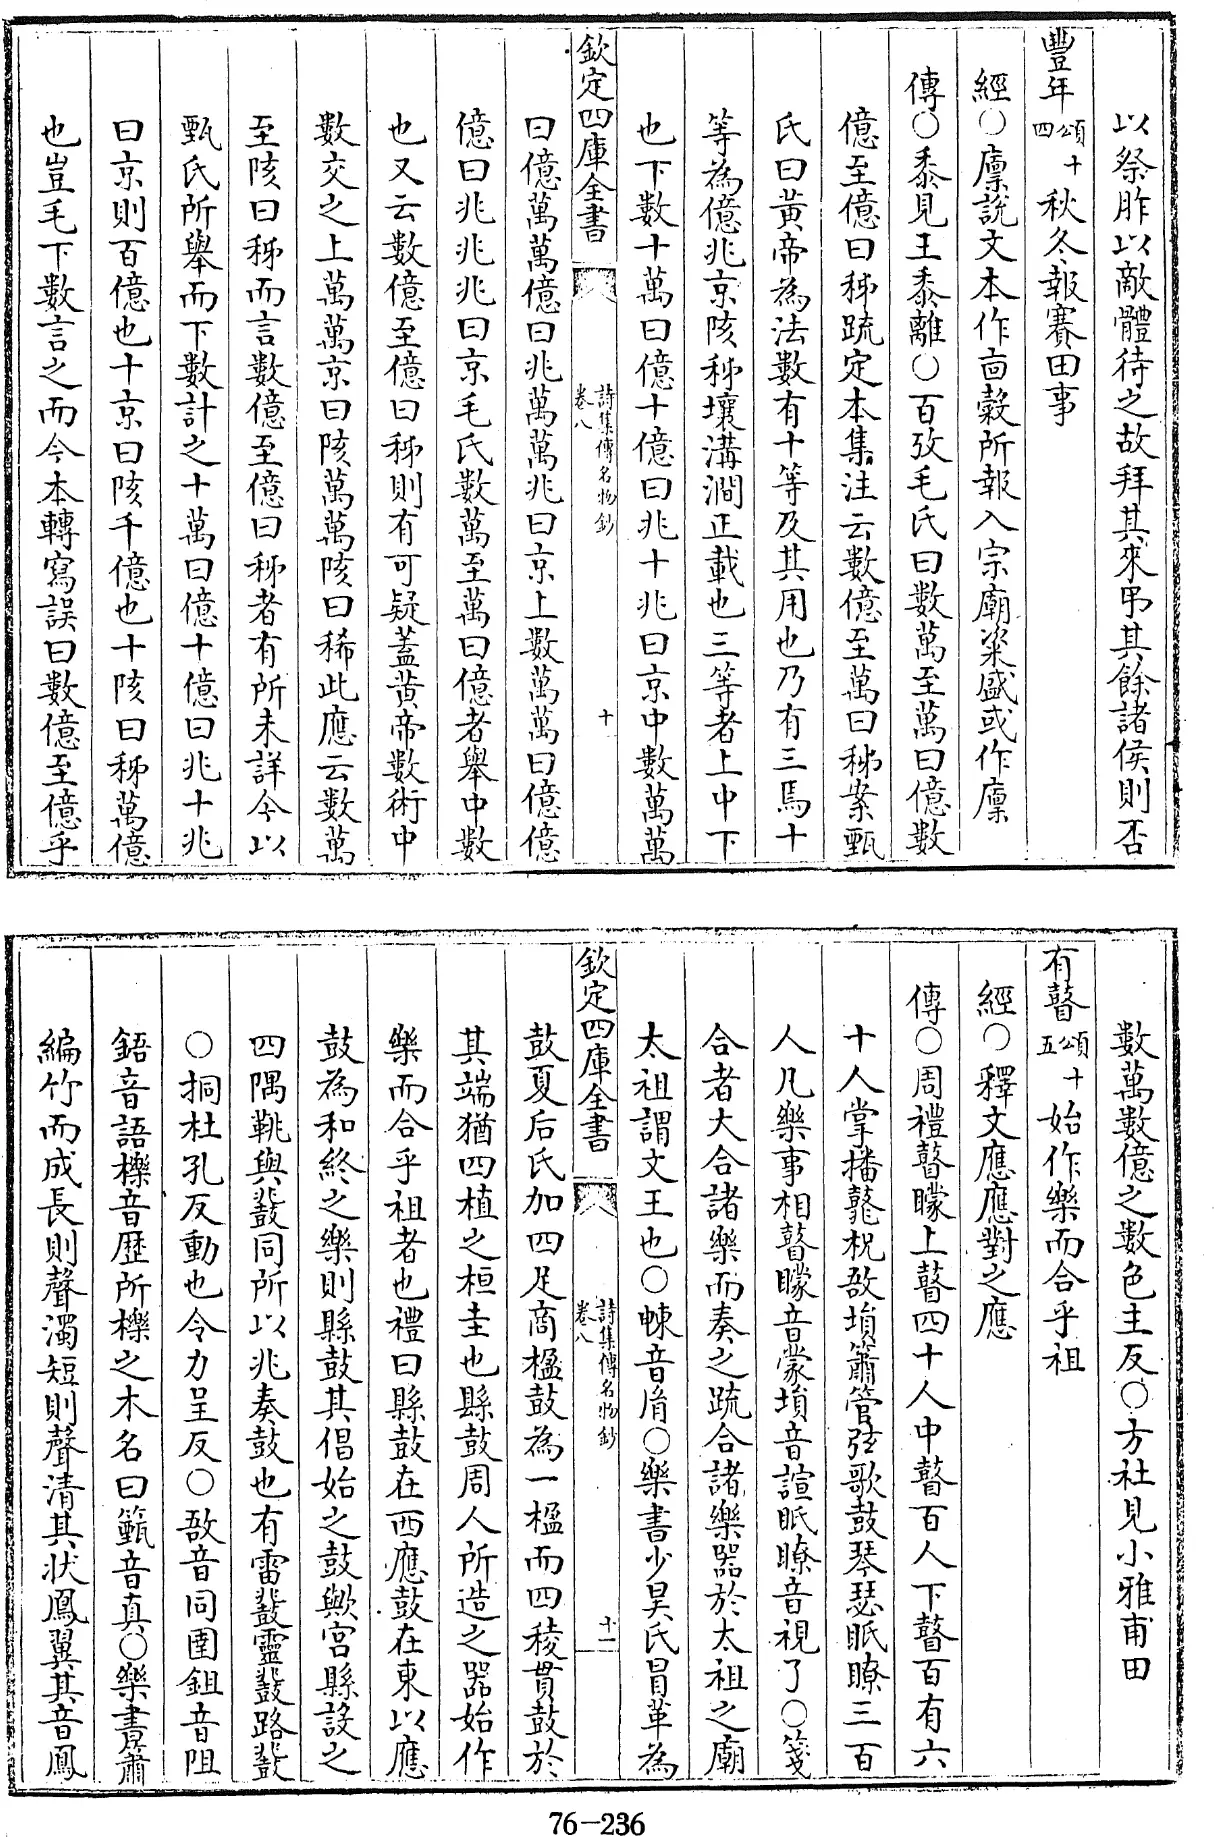 以祭胙以敵體待之故拜其來弔其餘諸侯則否
豐年頌十四秋冬報賽田事
經○廩説文本作㐭糓所報入宗廟粢盛或作廪
傳○黍見王黍離○百攷毛氏曰數萬至萬曰億數
億至億曰秭疏定本集注云數億至萬曰秭案甄
氏曰黄帝為法數有十等及其用也乃有三焉十
等為億兆京陔秭壤溝澗正載也三等者上中下
也下數十萬曰億十億曰兆十兆曰京中數萬萬
欽定四庫全書
詩集傳名物鈔
卷八
十
曰億萬萬億曰兆萬萬兆曰京上數萬萬曰億億
億曰兆兆兆曰京毛氏數萬至萬曰億者舉中數
也又云數億至億曰秭則有可疑蓋黄帝數術中
數交之上萬萬京曰陔萬萬陔曰稀此應云數萬
至陔曰秭而言數億至億曰秭者有所未詳今以
甄氏所舉而下數計之十萬曰億十億曰兆十兆
曰京則百億也十京曰陔千億也十陔曰秭萬億
也豈毛下數言之而今本轉寫誤曰數億至億乎
數萬數億之數色主反○方社見小雅甫田
有瞽頌十五始作樂而合乎祖
經○釋文應應對之應
傳○周禮瞽矇上瞽四十人中瞽百人下瞽百有六
十人掌播鼗柷敔塤簫管弦歌鼓琴瑟眡瞭三百
人凡樂事相瞽矇音蒙塤音諠眂瞭音視了○箋
合者大合諸樂而奏之疏合諸樂器於太祖之廟
太祖謂文王也○朄音胤○樂書少昊氏冒革為
欽定四庫全書
詩集傳名物鈔
卷八
十一
鼓夏后氏加四足商楹鼓為一楹而四稜貫鼓於
其端猶四植之桓圭也縣鼓周人所造之器始作
樂而合乎祖者也禮曰縣鼓在西應鼓在東以應
鼓為和終之樂則縣鼓其倡始之鼓歟宫縣設之
四隅鞉與鼖同所以兆奏鼓也有雷鼗靈鼗路鼗
○挏杜孔反動也令力呈反○敔音同圉鉏音阻
鋙音語櫟音歷所櫟之木名曰籈音真○樂書簫
編竹而成長則聲濁短則聲清其狀鳳翼其音鳳
76-236